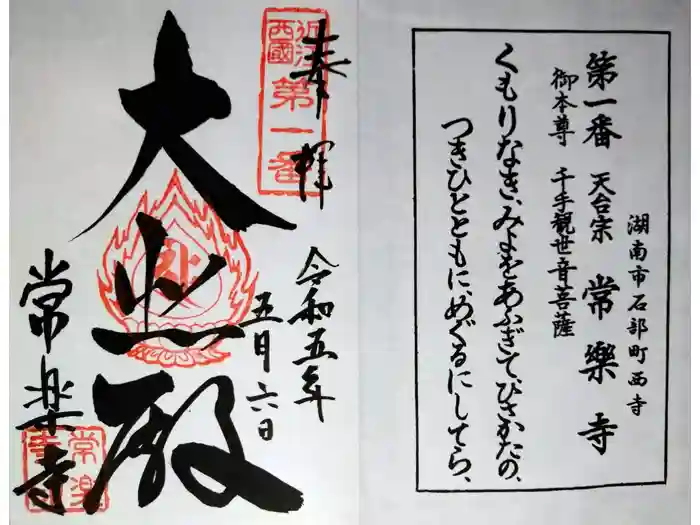 第一番 天台宗 常樂寺
湖南市石部町西寺
御本尊 千手観世音菩薩
くもりなき、みよをあふぎて、ひさかたの、
つきひとともに、めぐるにしてら、
奉拝
近江
西國
第一番
令和五年
五月六日
大悲殿
常楽寺
常楽
寺